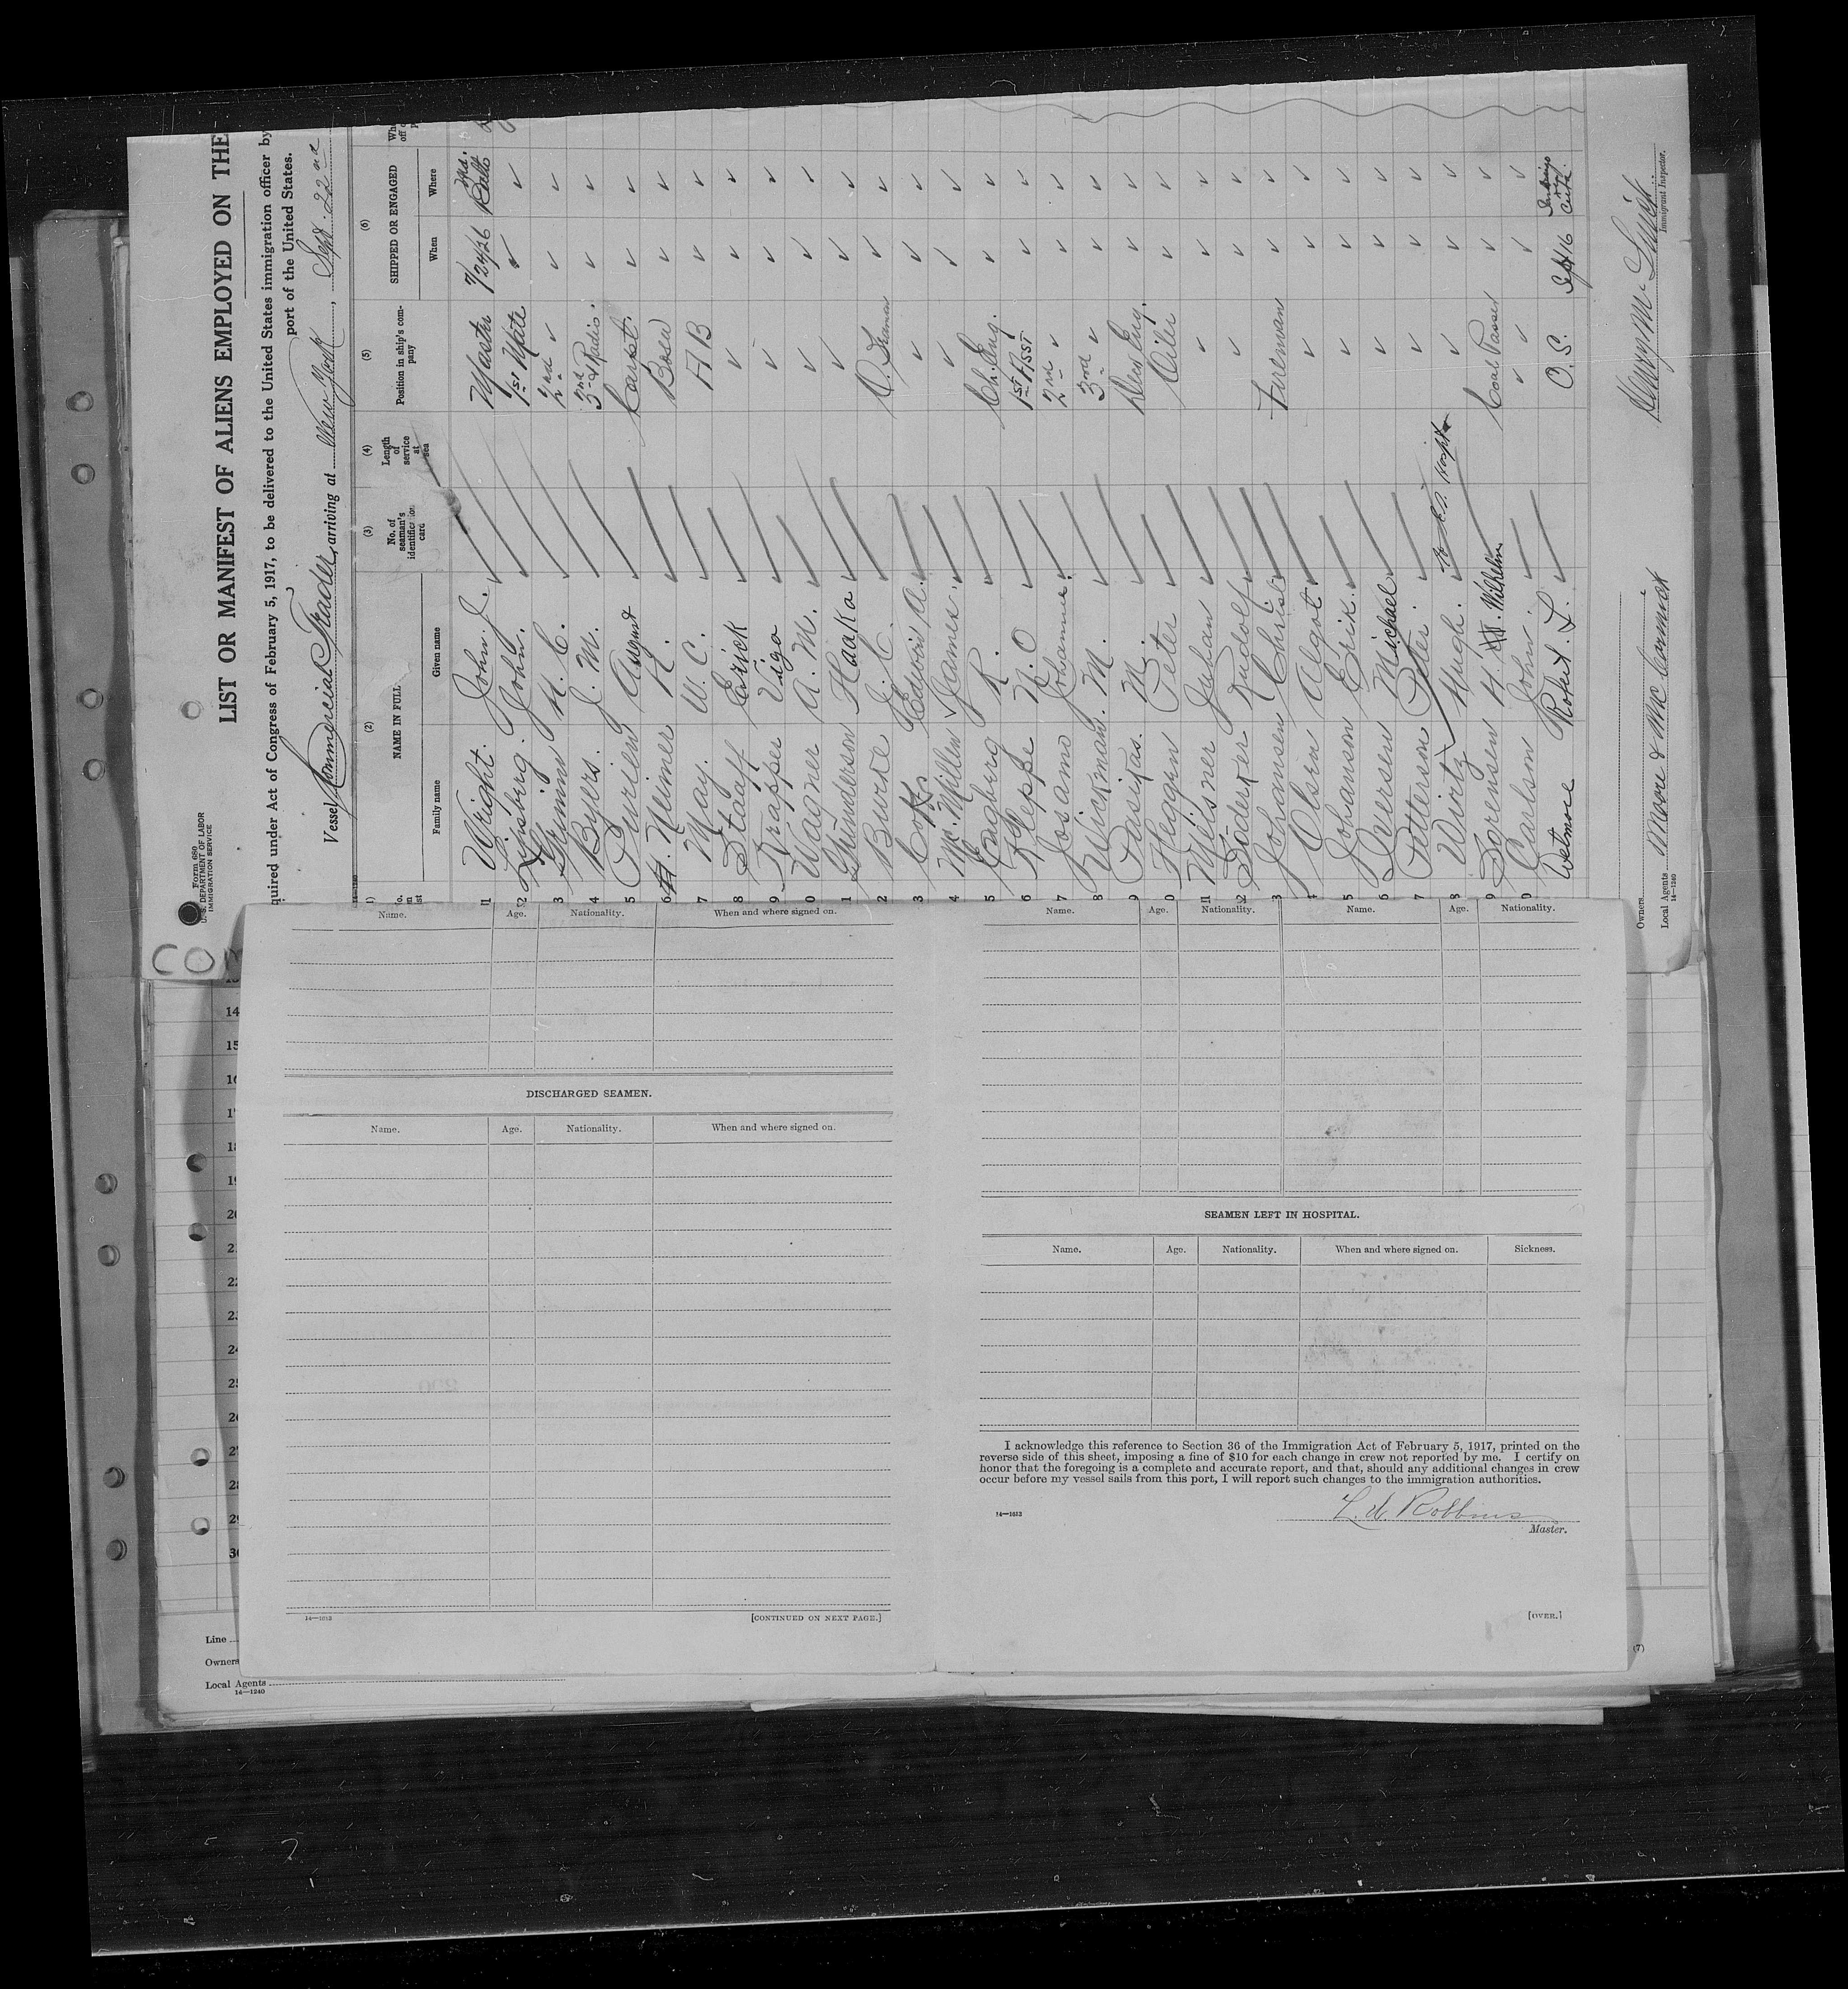 Form 680
U. S. DEPARTMENT OF LABOR
IMMIGRATION SERVICE
LIST OR MANIFEST OF ALIENS EMPLOYED ON THE
quired under Act of Congress of February 5, 1917, to be delivered to the United States immigration officer by
port of the United States.
Vessel Commercial Trader, arriving at New York, Sept. 22nd
(2) (3) (4) (5) (6)
NAME IN FULL No. of seaman's identification card Length of service at sea Position in ship's company SHIPPED OR ENGAGED
Family name Given name When Where
1 Wright. John J. Master 7/24/26 Balto Md.
2 Ginsberg. John. 1st Mate ✓ ✓
3 Grimm H. C. 2nd ✓ ✓ ✓
4 Byers. J. M. 3rd & Radio. ✓ ✓
5 August Carpt. ✓ ✓
6 Neimer H. Bosn ✓ ✓
7 May. W. C. AB ✓ ✓
8 Staaff Erick ✓ ✓ ✓
9 Krapper Vigo ✓ ✓ ✓
0 Wagner A. M. ✓ ✓ ✓
1 Gunderson Haaka ✓ ✓ ✓
2 Burke J. C. O. Seaman ✓ ✓
3 Edwin A. ✓ ✓ ✓
4 Mc.Millen James. ✓ ✓ ✓
5 Fagberg R. Ch. Eng. ✓ ✓
6 Kleppe N. O 1st Asst ✓ ✓
7 Josamo Johannes. 2nd ✓ ✓ ✓
8 Wickman. M. 3rd ✓ ✓ ✓
9 M. Eng. ✓ ✓
0 Heagen Peter Oiler ✓ ✓
1 Meisner Juhan ✓ ✓ ✓
2 Rudolf ✓ ✓ ✓
3 Johansen Christ. Fireman ✓ ✓
4 Olsen Algot ✓ ✓ ✓
5 Johanson Erik. ✓ ✓ ✓
6 Iversen Michael ✓ ✓ ✓
7 Petterson Peter. ✓ ✓ ✓
8 Wirtz Hugh. ✓ ✓ ✓
9 Sorensen H. Wilhelm Coal Passer ✓ ✓
0 Carlson John ✓ ✓ ✓
Wetmore Robert L. O. S. Sept 16 Cuba.
Owners
Local Agents Moore & McCormick
14—1240
Immigrant Inspector.
Name. Age. Nationality. When and where signed on.
DISCHARGED SEAMEN.
Name. Age. Nationality. When and where signed on.
14—1612
[CONTINUED ON NEXT PAGE.]
Name. Age. Nationality. Name. Age. Nationality.
SEAMEN LEFT IN HOSPITAL.
Name. Age. Nationality. When and where signed on. Sickness.
I acknowledge this reference to Section 36 of the Immigration Act of February 5, 1917, printed on the
reverse side of this sheet, imposing a fine of $10 for each change in crew not reported by me. I certify on
honor that the foregoing is a complete and accurate report, and that, should any additional changes in crew
occur before my vessel sails from this port, I will report such changes to the immigration authorities.
14—1612
L. W. Robbins
Master.
[OVER.]
14
15
20
22
25
30
Line
Owners
Local Agents
14—1240
(7)